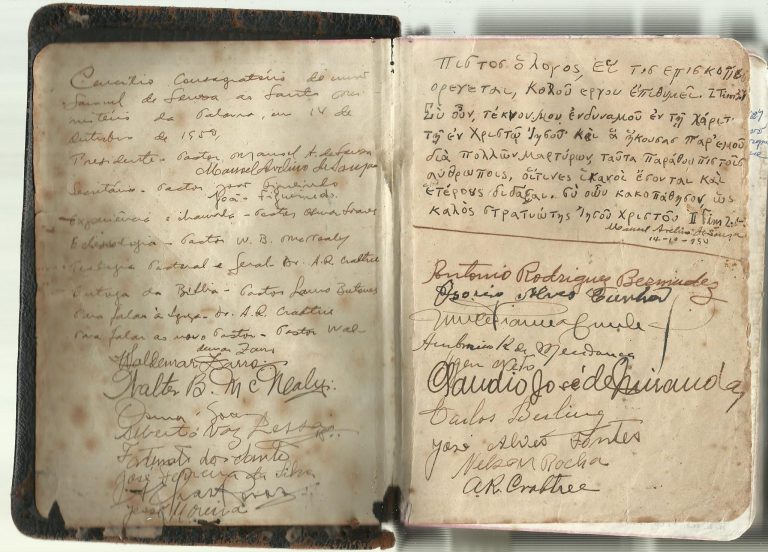 Concilio Consagratório do irmão
Samuel de Souza ao Santo Mi-
nisterio da Palavra, em 14 de
Outubro de 1950,
Presidente - Pastor Manuel A. de Souza
Manuel Avelino de Souza
Secretário - Pastor João Figueiredo
João Figueiredo
Experiência e chamada - Pastor Soares
Eclesiologia - Pastor W. B. McNealy
Teologia Pastoral e Geral - Dr. A. R. Crabtree
Entrega da Biblia - Pastor
Para falar à Igreja - Dr. A. R. Crabtree
Para falar ao novo Pastor - Pastor Wal-
demar Zarro
Waldemar Zarro
Walter B. McNealy.
Alberto Vaz Lessa
Fortunato dos Santos
José Ferreira da Silva
José Moreira
Πιστος ὁ λόγος, Εἴ τις επισκοπῆς
ορεγεται, καλοῦ εργου ἐπιθυμεῖ. I Tim 3:1
Σὺ οὖν, τέκνον μου, ἐνδυναμοῦ ἐν τῇ χάριτι
τῇ ἐν Χριστῷ Ἰησοῦ καὶ ἃ ἤκουσας παρ' ἐμοῦ
διὰ πολλῶν μαρτύρων, ταῦτα παράθου πιστοῖς
ἀνθρώποις, οἵτινες ἱκανοὶ ἔσονται καὶ
ἑτέρους διδάξαι. σὺ οὖν κακοπάθησον ὡς
καλὸς στρατιώτης Ἰησοῦ Χριστοῦ II Tim 2:1-3
Manuel Avelino de Souza
14-10-950
Antonio Rodriguez Bermudez
Alves Cunha
Ambrosio R. de Mendonça
Neto
Claudio José de Miranda
Carlos Berling
José Alves Fontes
Nelson Rocha
A.R. Crabtree